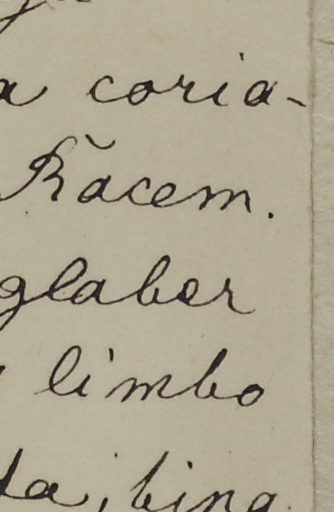 a coria-
Răcem.
glaber
limbo
ta, bina